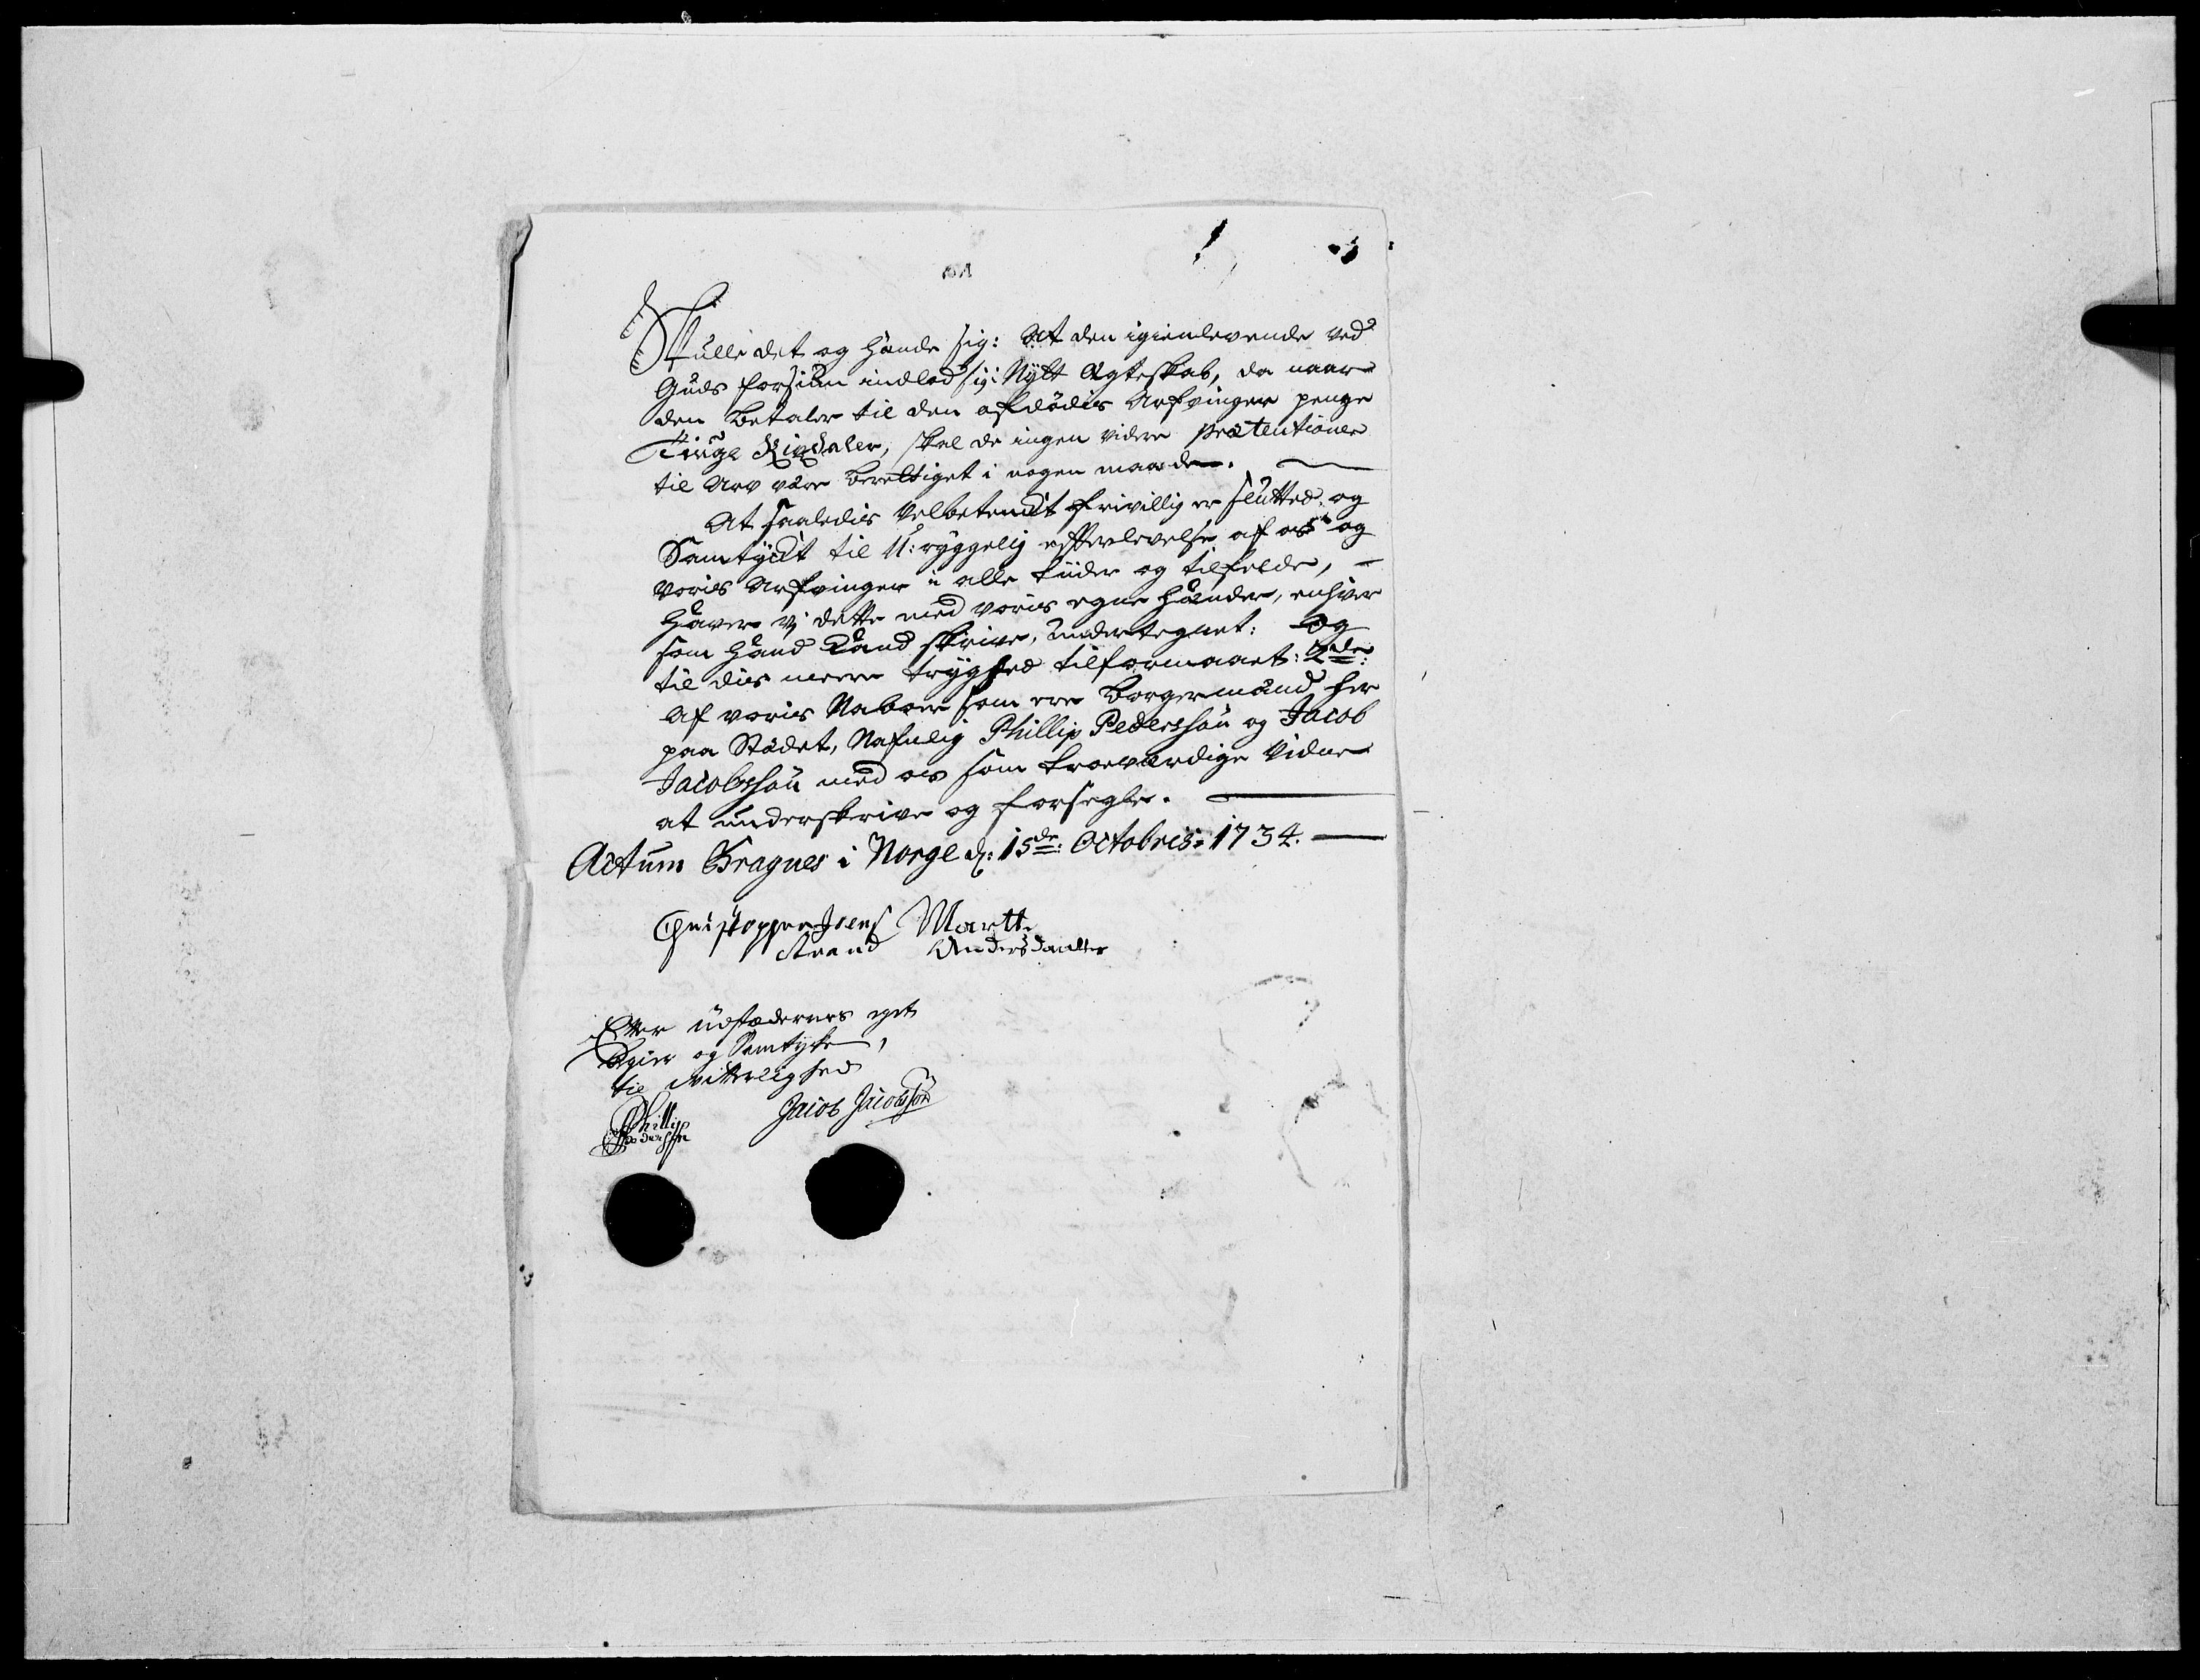 Skulle det og hænde sig: At den igienlevende ved
Guds forsiun indlod sig i Nÿtt Ægteskab, da naar
den betaler til den afdødis Arfvinger penge
Tiuge Rixdaler, skal de ingen videre prætentioner
til Arv være berettiget i nogen maade.
At saaledis Velbetenckt frivillig er sluttet og
Samtÿckt til U:ryggelig efterlevelse af os og
voris Arfvinger i alle tiider og tilfelde,
haver vj dette med voris egne hænder, enhver
som hand kand skrive, undertegnet: Og
til dis meere tryghed tilformaaet: 2de:
af voris Naboer som ere borgermænd her
paa Stædet, Nafnlig Phillip Pedersøn og Jacob
Jacobsøn med os som troeværdige Vidner
at underskrive og forsegle.
Actum Bragnes i Norge d: 15de: Octobris: 1734.
Christopher Jens Marthe
Strand Andersdaatter
Efter udstædernes eget
begier og Samtykke,
til vitterlighed
Phillip Jacob Jacobsøn
Pedersøn